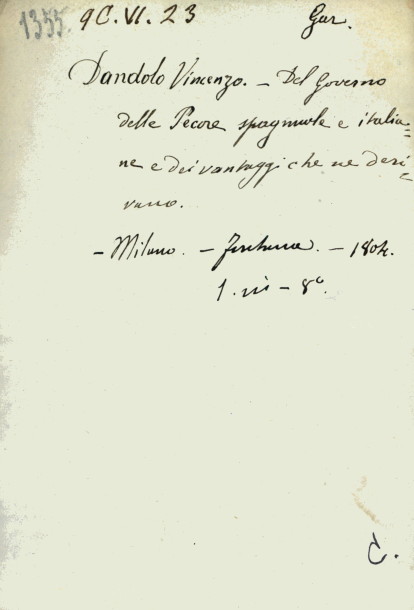 1355. 9C.VI.23 Gar.
Dandolo Vincenzo. - Del Governo
delle Pecore spagnuole e italia=
ne e dei vantaggi che ne deri=
vano.
- Milano. - - 1804.
1. - 8°.
C.